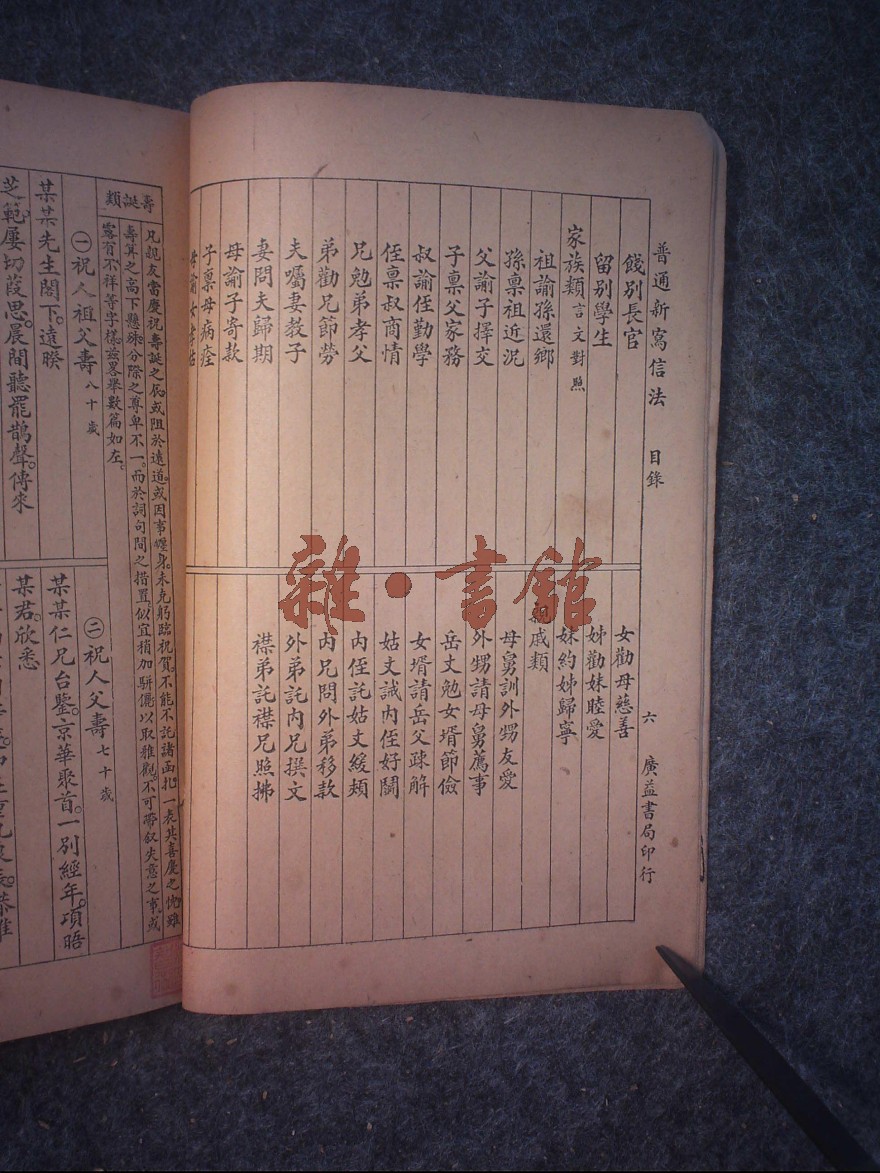 普通新寫信法 目錄 六 廣益書局印行
餞別長官
留別學生
家族類 言文對照
祖諭孫還鄉
孫稟祖近況
父諭子擇交
子稟父家務
叔諭侄勤學
侄稟叔商情
兄勉弟孝父
弟勸兄節勞
夫囑妻教子
妻問夫歸期
母諭子寄款
子稟母病痊
女勸母慈善
姊勸妹睦愛
妹約姊歸寧
戚類
母舅訓外甥友愛
外甥請母舅薦事
岳丈勉女壻節儉
女壻請岳父疎解
姑丈誡內侄好鬭
內侄託姑丈緩頰
內兄問外弟移款
外弟託內兄撰文
襟弟託襟兄照拂
雜·書館
壽誕類
凡親友當慶祝壽誕之辰或阻於遠道。或因事纏身。未克躬臨祝賀。不能不託諸函札。一表其喜慶之忱。雖
壽算之高下懸殊。分際之尊卑不一。而於詞句間之措置。似宜稍加駢儷。以取雅觀。不可帶叙失意之事。或
畧有不祥等字樣。茲畧舉數篇如左。
㊀祝人祖父壽 八十歲
某某先生閣下。遠睽
芝範。屢切葭思。晨間聽罷鵲聲。傳來
㊁祝人父壽 七十歲
某某仁兄台鑒。京華聚首。一別經年。項晤
某君。欣悉